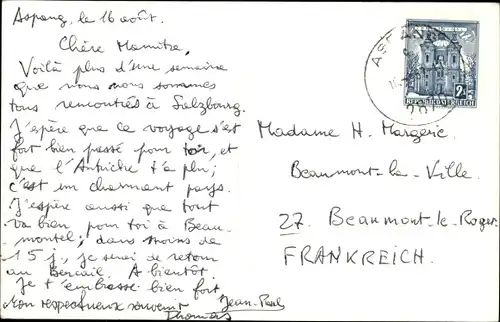 Aspang, le 16 août.
Chère Mamitza,
Voilà plus d'une semaine
que nous nous sommes
tous rencontrés à Salzbourg.
J'espère que ce voyage s'est
fort bien passé pour toi, et
que l'Autriche t'a plu;
c'est un charmant pays.
J'espère aussi que tout
va bien, pour toi à Beau-
montel; dans moins de
15 j., je serai de retour
au Bercail. A bientôt.
Je t'embrasse bien fort
Jean-Paul
Mon respectueux souvenir
Thomas
ASPANG
2870
2 S
REPUBLIK ÖSTERREICH
Madame H. Margerie
Beaumont-la-Ville.
27. Beaumont-le-Roger
FRANKREICH.